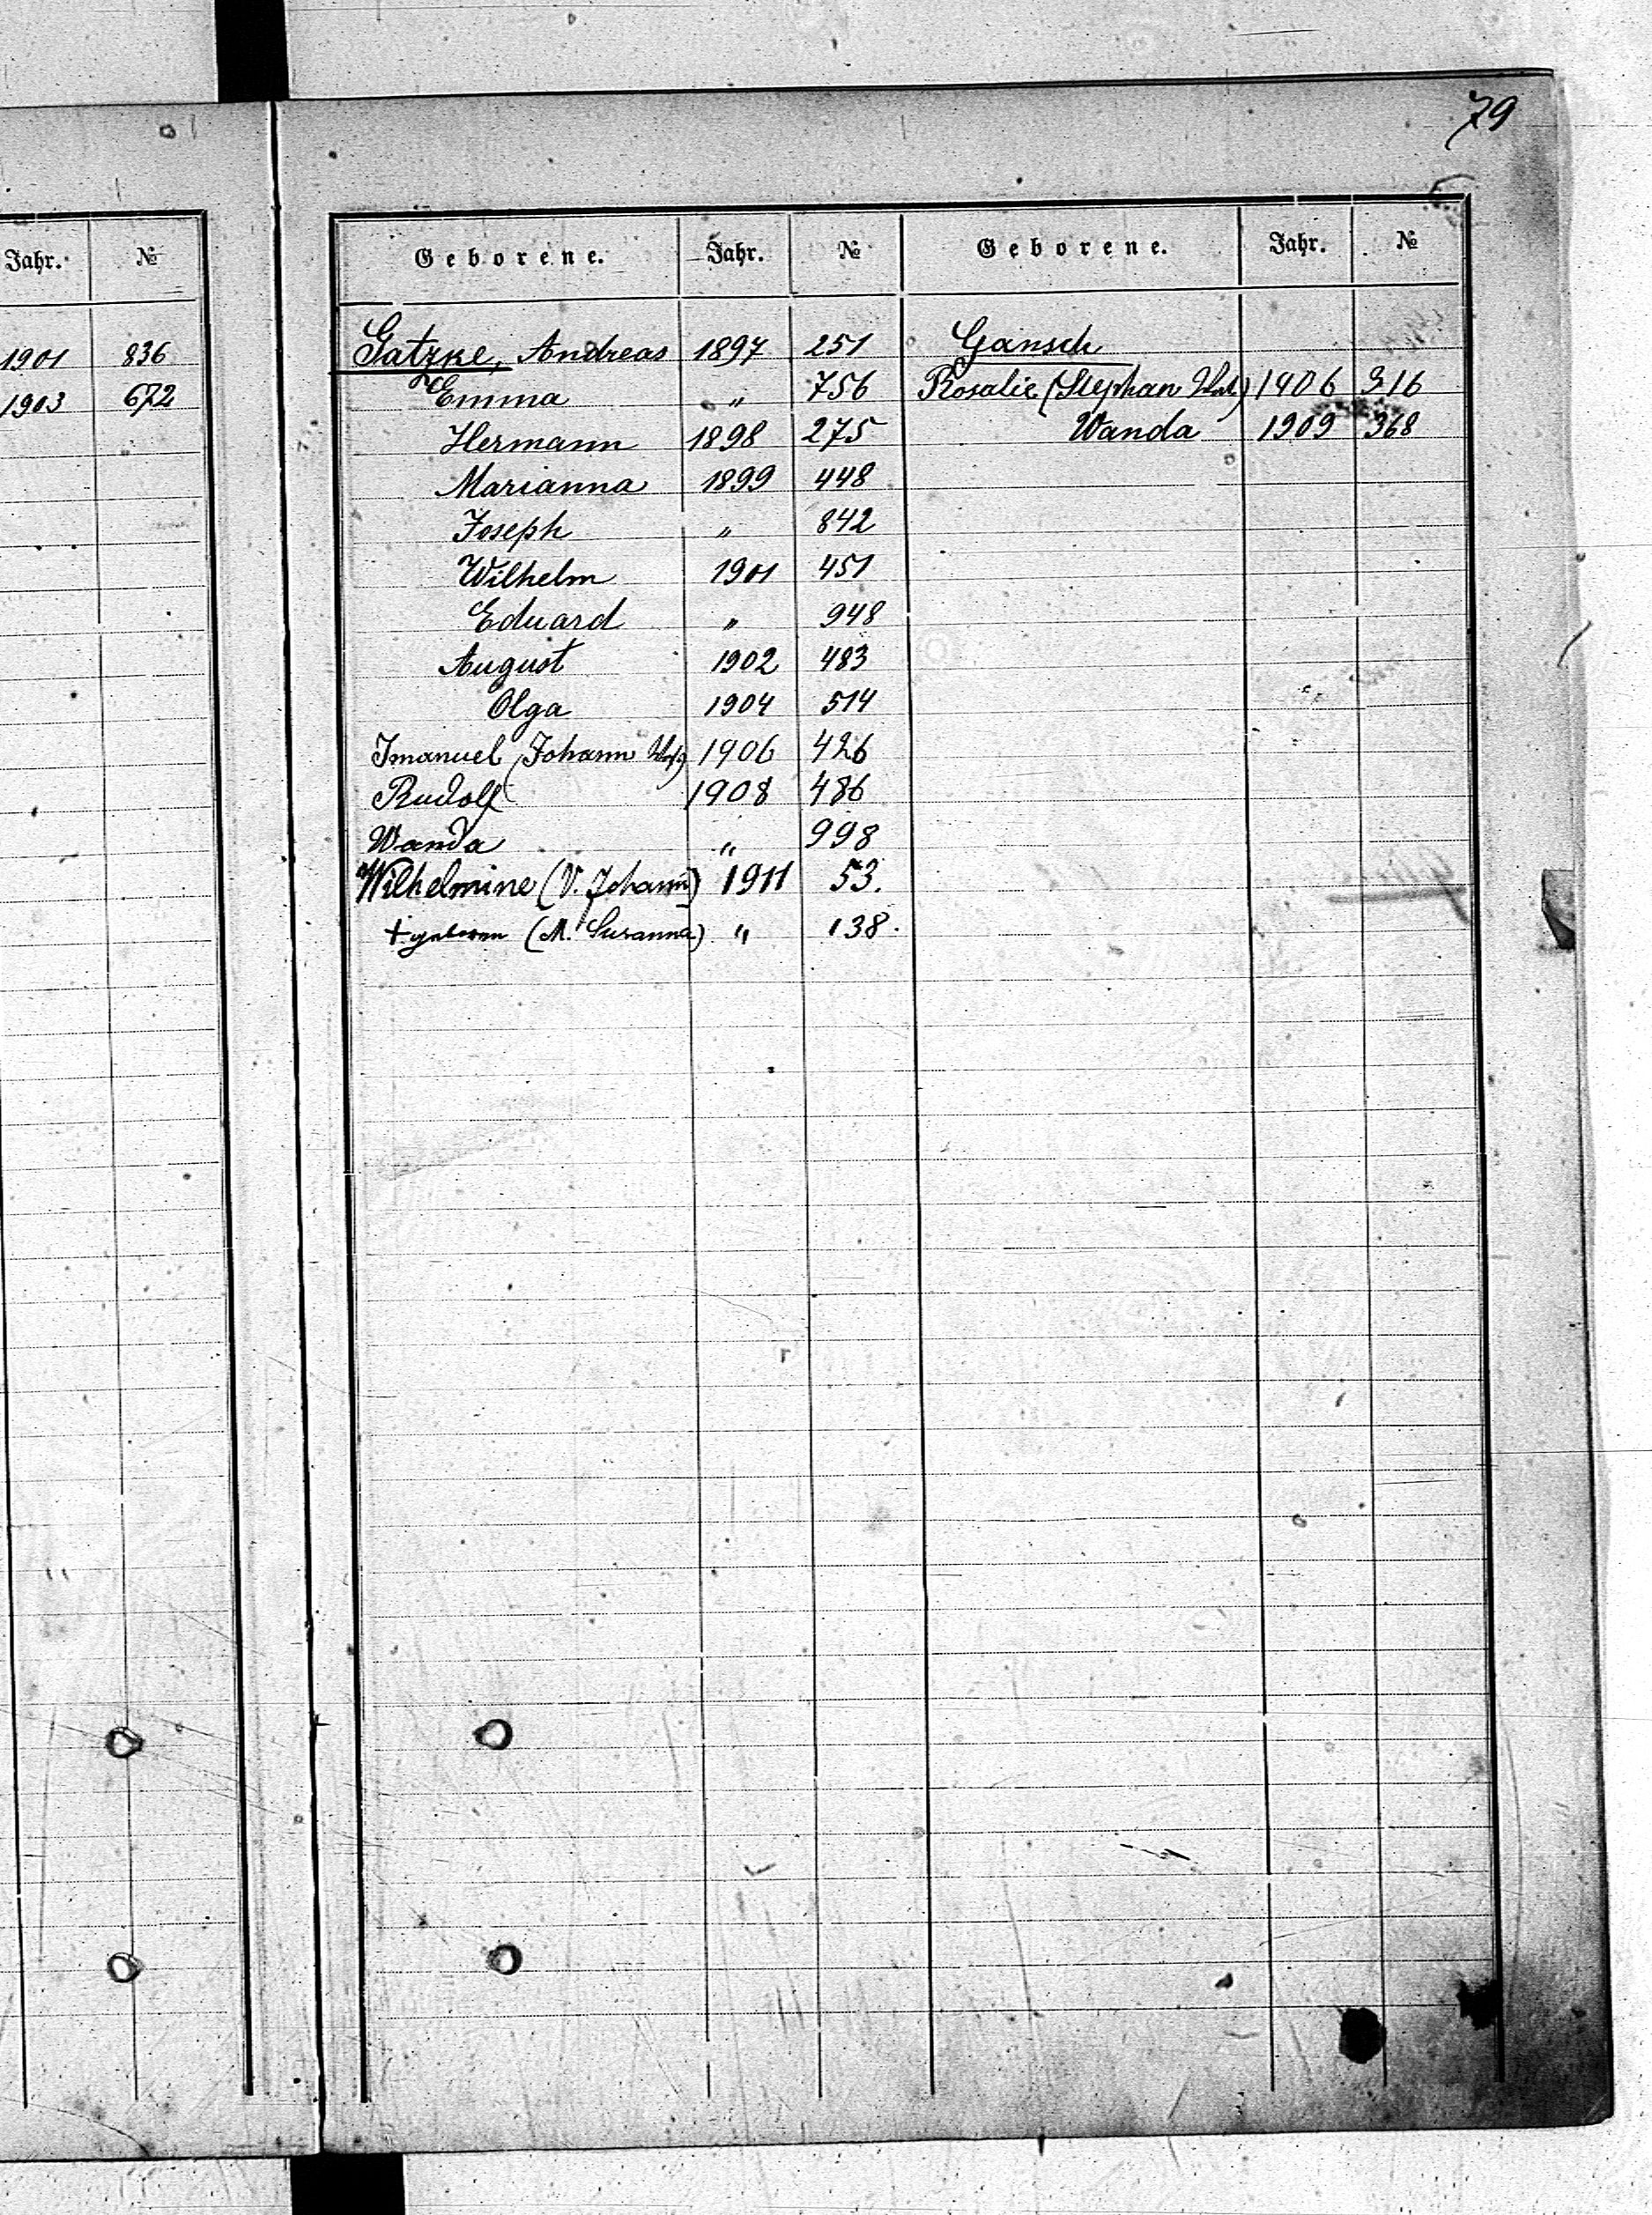 79
Jahr. №
1901 836
1903 672
Geborene. Jahr. № Geborene. Jahr. №
Gatzke, Andreas 1897 251 Gansch
Emma " 756 Rosalie (Stephan 1906 316
Hermann 1898 275 Wanda 1909 368
Marianna 1899 448
Joseph " 842
Wilhelm 1901 451
Eduard " 948
August 1902 483
Olga 1904 514
Imanuel (Johann 1906 426
Rudolf 1908 486
Wanda " 998
Wilhelmine (V. Johann) 1911 53.
+ geboren (M. Susanna) " 138.